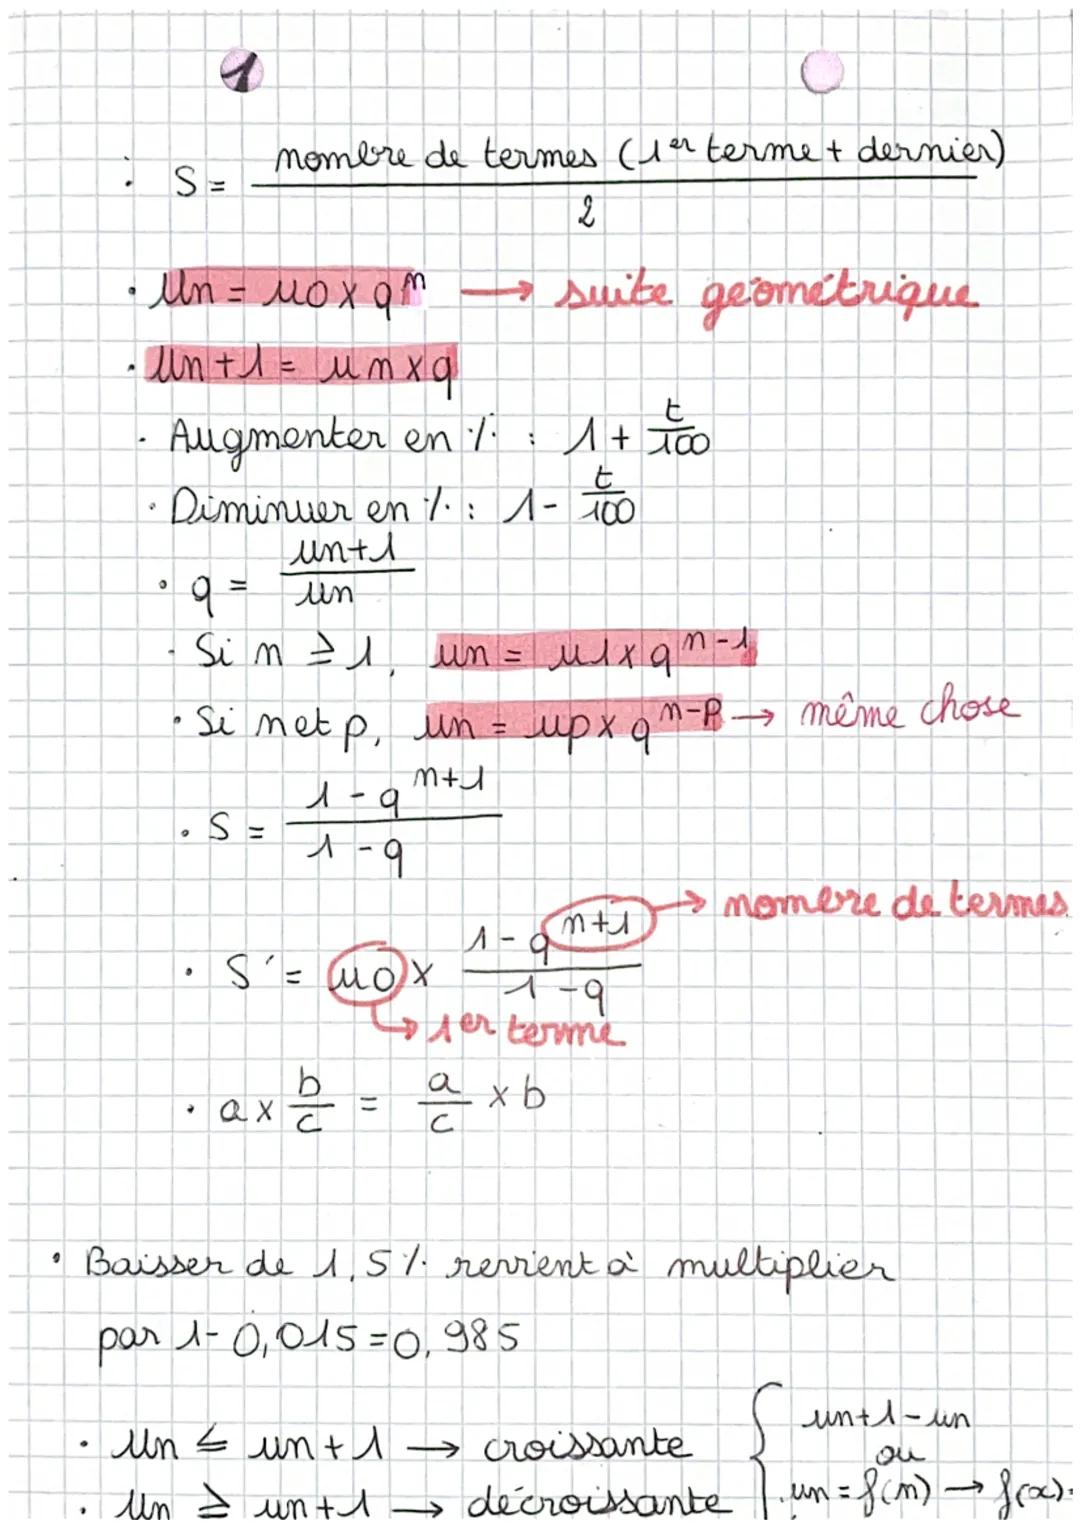 1
: S = nombre de termes (1er terme + dernier)
2
• Un = u0 x q^n → suite géométrique
• Un+1 = un x q
• Augmenter en % : 1 + t/100
• Diminuer en % : 1 - t/100
• q = un+1/un
• Si n ≥ 1, un = u1 x q^n-1
• Si n et p, un = up x q^n-p → même chose
• S = 1 - q^n+1 / 1 - q
• S' = u0 x 1 - q^n+1 / 1 - q → nombre de termes
→ 1er terme
• a x b/c = a/c x b
• Baisser de 1,5% revient à multiplier
par 1 - 0,015 = 0,985
• Un ≤ un+1 → croissante { un+1 - un
ou
• Un ≥ un+1 → décroissante un = f(n) → f(x) =